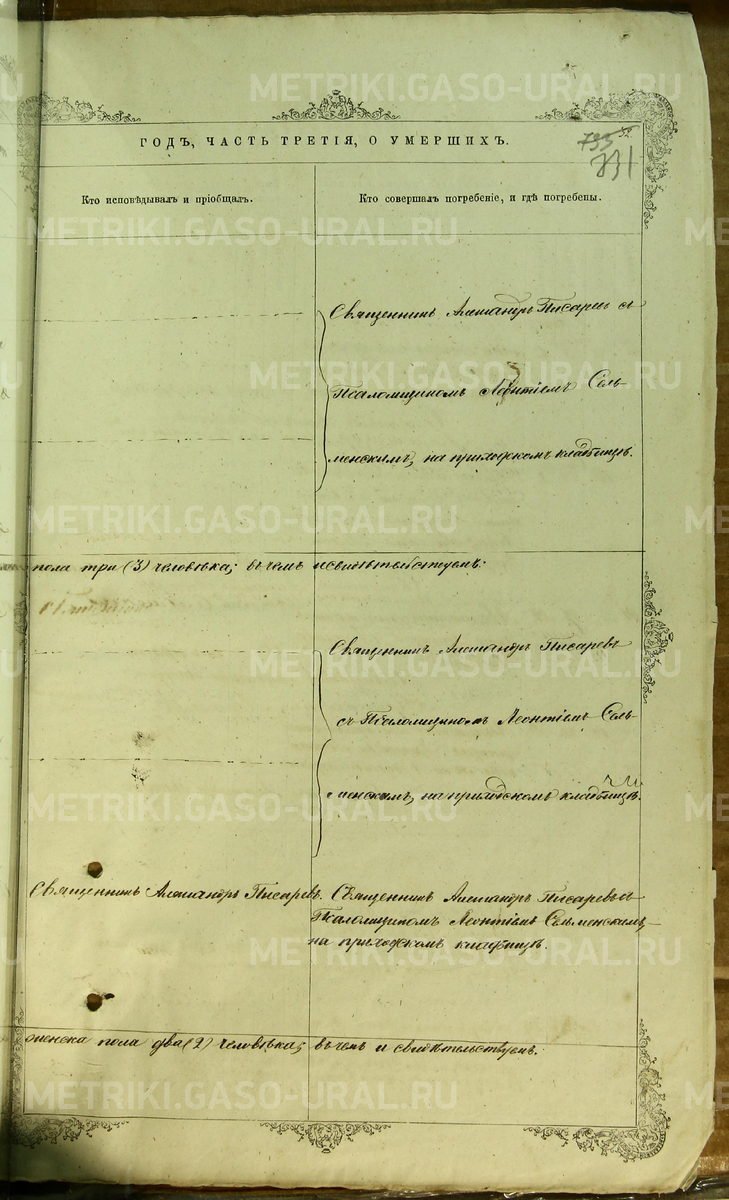 ГОДЪ, ЧАСТЬ ТРЕТІЯ, О УМЕРШИХЪ.
793
731
Кто исповѣдывалъ и пріобщалъ.
Кто совершалъ погребеніе, и гдѣ погребены.
Священникъ Александръ Писаревъ съ
Псаломщикомъ Леонтіемъ Сель-
менскимъ, на приходскомъ кладбищѣ.
пола три (3) человѣка; въ чемъ и свидѣтельствуемъ:
Священникъ Александръ Писаревъ
съ Псаломщикомъ Леонтіемъ Сель-
менскимъ, на приходскомъ кладбищѣ.
Священникъ Александръ Писаревъ.
Священникъ Александръ Писаревъ съ
Псаломщикомъ Леонтіемъ Сельменскимъ,
на приходскомъ кладбищѣ.
женска пола два (2) человѣка; въ чемъ и свидѣтельствуемъ.
METRIKI.GASO-URAL.RU